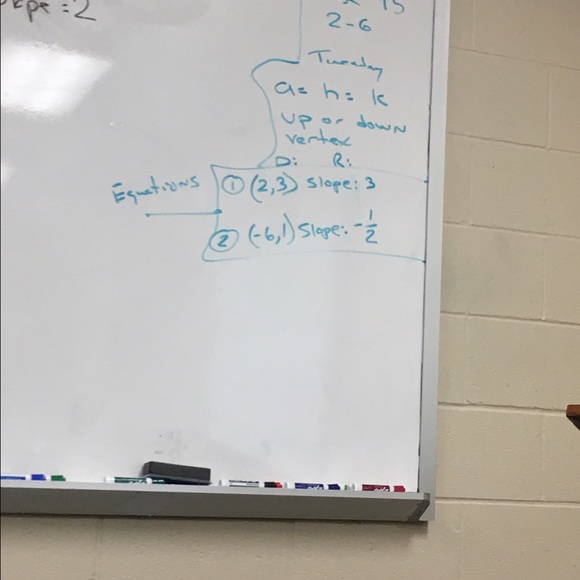 slope = 2
15
2-6
Tuesday
a= h= k
up or down
vertex
D: R:
Equations
① (2,3) slope: 3
② (-6,1) Slope: -1/2